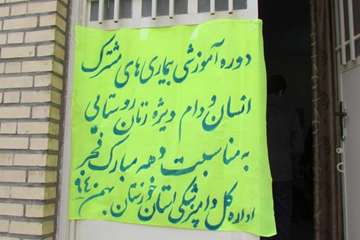 دوره آموزشی بیماری های مشترک
انسان و دام ویژه زنان روستایی
به مناسبت دهه مبارک فجر
اداره کل دامپزشکی استان خوزستان بهمن ۹۴